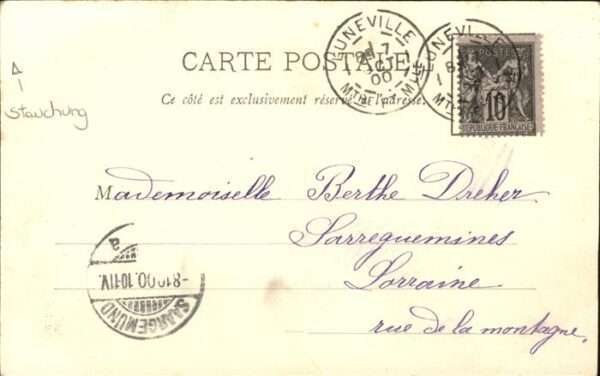 CARTE POSTALE
Ce côté est exclusivement réservé à l'adresse.
LUNEVILLE
7
OCT
00
MTHE ET M
LUNEVILLE
POSTES
10
REPUBLIQUE FRANÇAISE
Stauchung
Mademoiselle Berthe Dreher
Sarreguemines
Lorraine
rue de la montagne.
SAARGEMÜND
-8.10.00.10-11V.
a